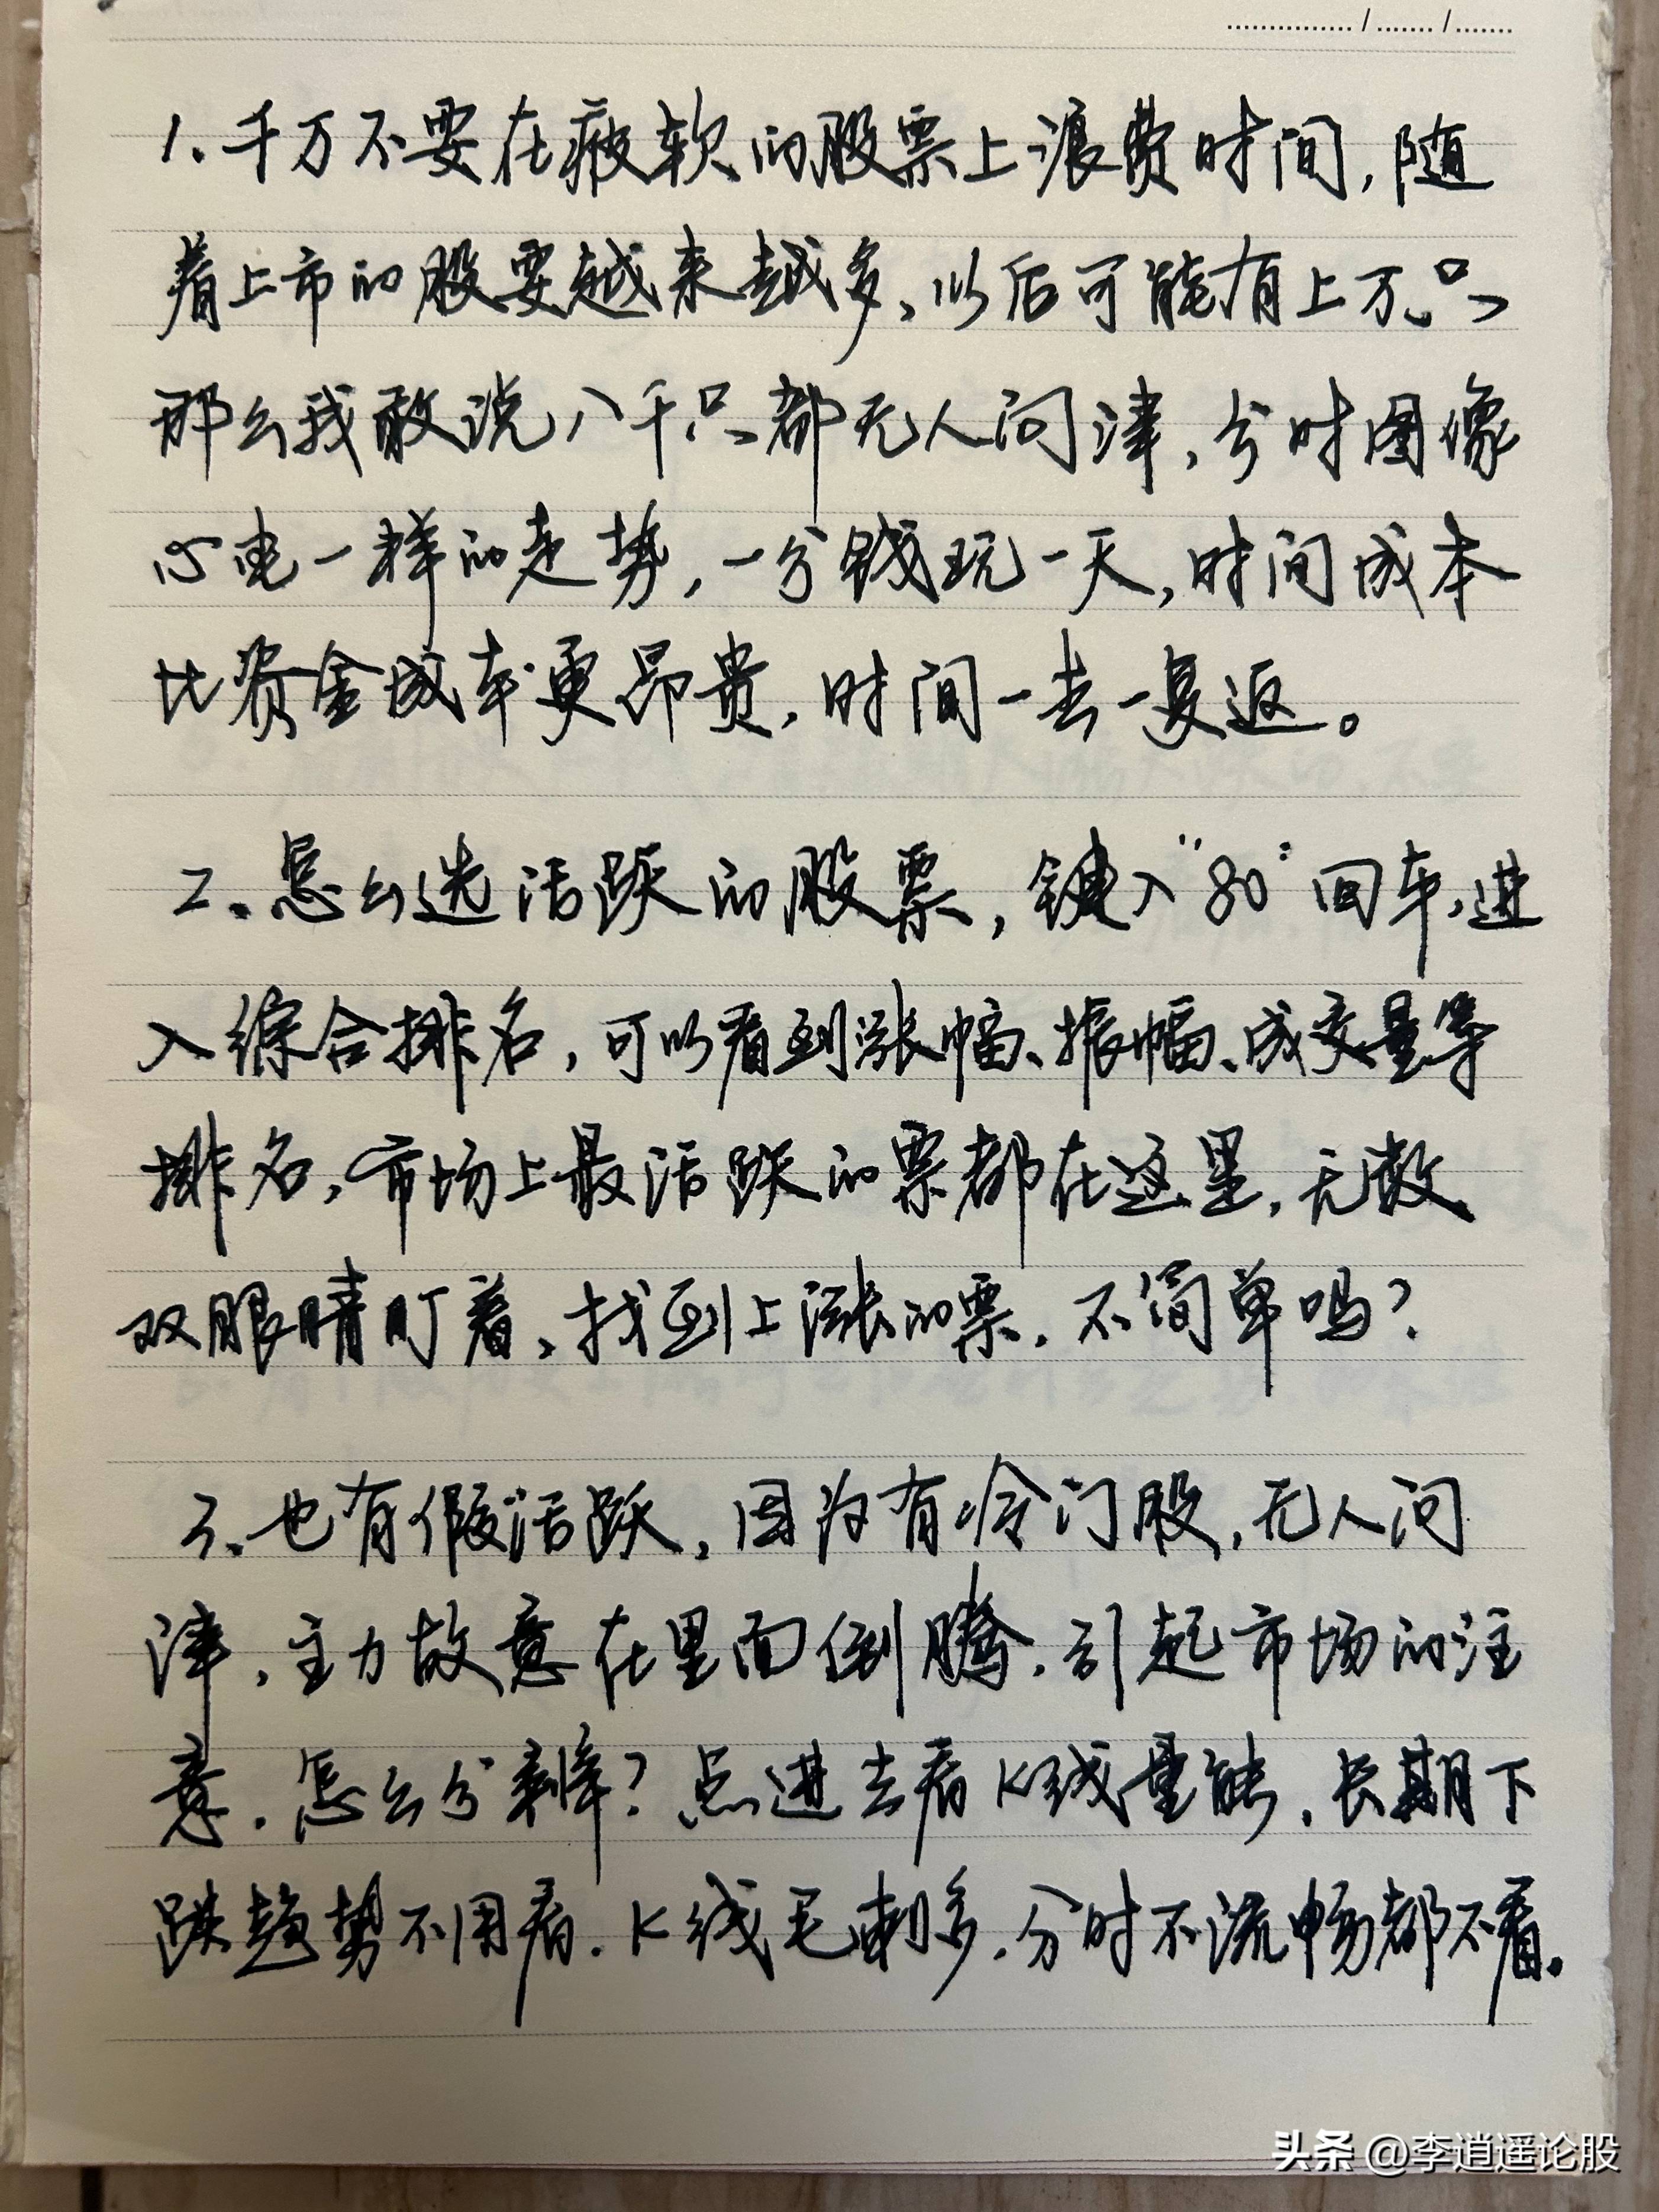 1、千万不要在疲软的股票上浪费时间，随
着上市的股要越来越多，以后可能有上万只
那么我敢说八千只都无人问津，分时图像
心电一样的走势，一分钱玩一天，时间成本
比资金成本更昂贵，时间一去一复返。
2、怎么选活跃的股票，键入"80"回车，进
入综合排名，可以看到涨幅、振幅、成交量等
排名，市场上最活跃的票都在这里，无数
双眼睛盯着，找到上涨的票，不简单吗？
3、也有假活跃，因为有冷门股，无人问
津，主力故意在里面倒腾，引起市场的注
意，怎么分辨？点进去看K线量能，长期下
跌趋势不用看，K线毛刺多，分时不流畅都不看。
头条 @李逍遥论股